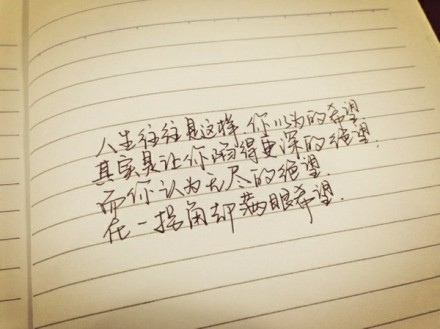 人生往往是这样,你以为的希望.
其实是让你陷得更深的绝望.
而你认为无尽的绝望.
在一拐角却满眼希望.